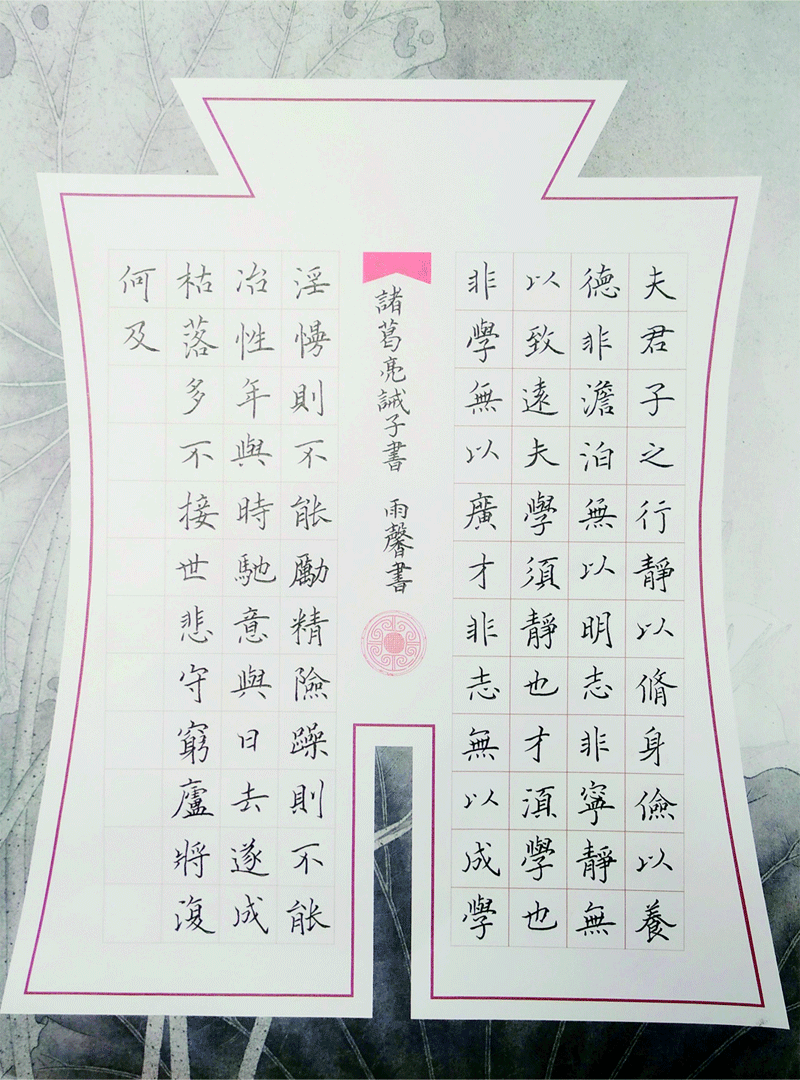 夫君子之行靜以脩身儉以養
德非澹泊無以明志非寧靜無
以致遠夫學須靜也才須學也
非學無以廣才非志無以成學
諸葛亮誡子書 雨馨書
淫慢則不能勵精險躁則不能
冶性年與時馳意與日去遂成
枯落多不接世悲守窮廬將復
何及